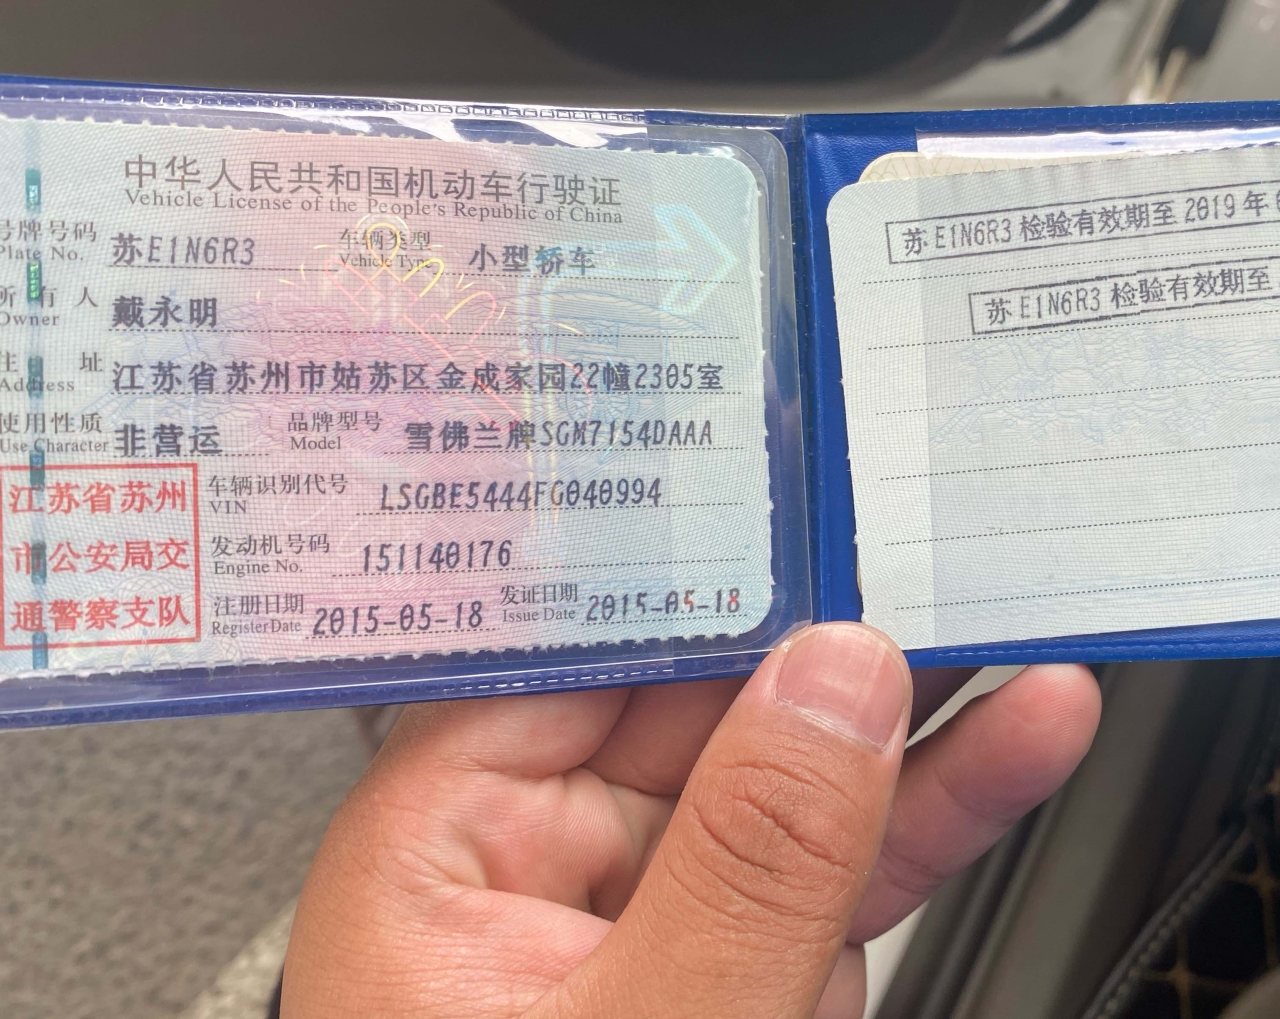 中华人民共和国机动车行驶证
Vehicle License of the People's Republic of China
号牌号码 苏E1N6R3 车辆类型 小型轿车
Plate No. Vehicle Type
所有人 戴永明
Owner
住址 江苏省苏州市姑苏区金成家园22幢2305室
Address
使用性质 非营运 品牌型号 雪佛兰牌SGM7154DAAA
Use Character Model
江苏省苏州
市公安局交
通警察支队
车辆识别代号 LSGBE5444FG040994
VIN
发动机号码 151140176
Engine No.
注册日期 2015-05-18 发证日期 2015-05-18
Register Date Issue Date
苏E1N6R3 检验有效期至 2019年
苏E1N6R3 检验有效期至